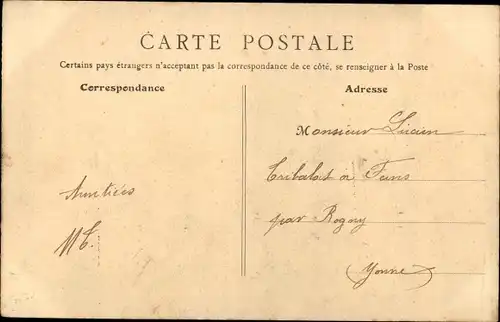 CARTE POSTALE
Certains pays étrangers n'acceptant pas la correspondance de ce côté, se renseigner à la Poste
Correspondance
Adresse
Monsieur Lucien
à Fans
Amitiés
par Rogny
(Yonne)